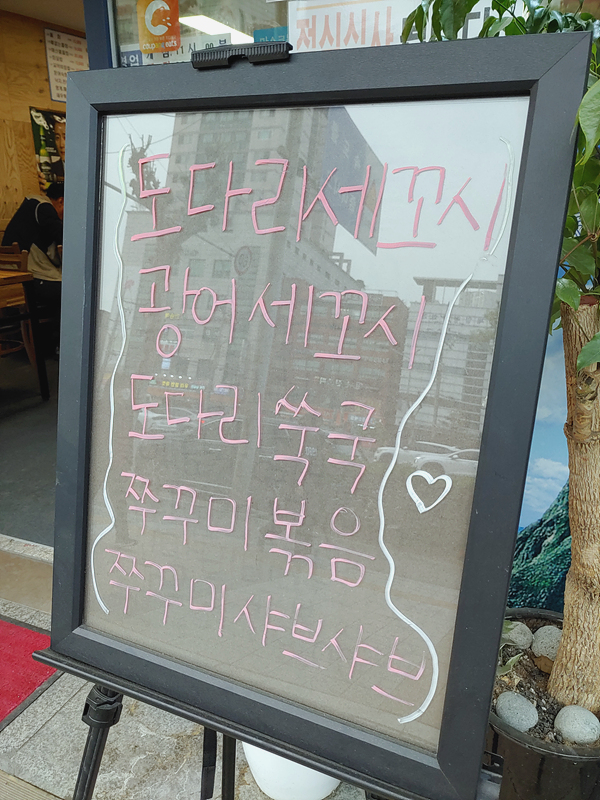 도다리세꼬시
광어세꼬시
도다리쑥국
쭈꾸미볶음
쭈꾸미샤브샤브